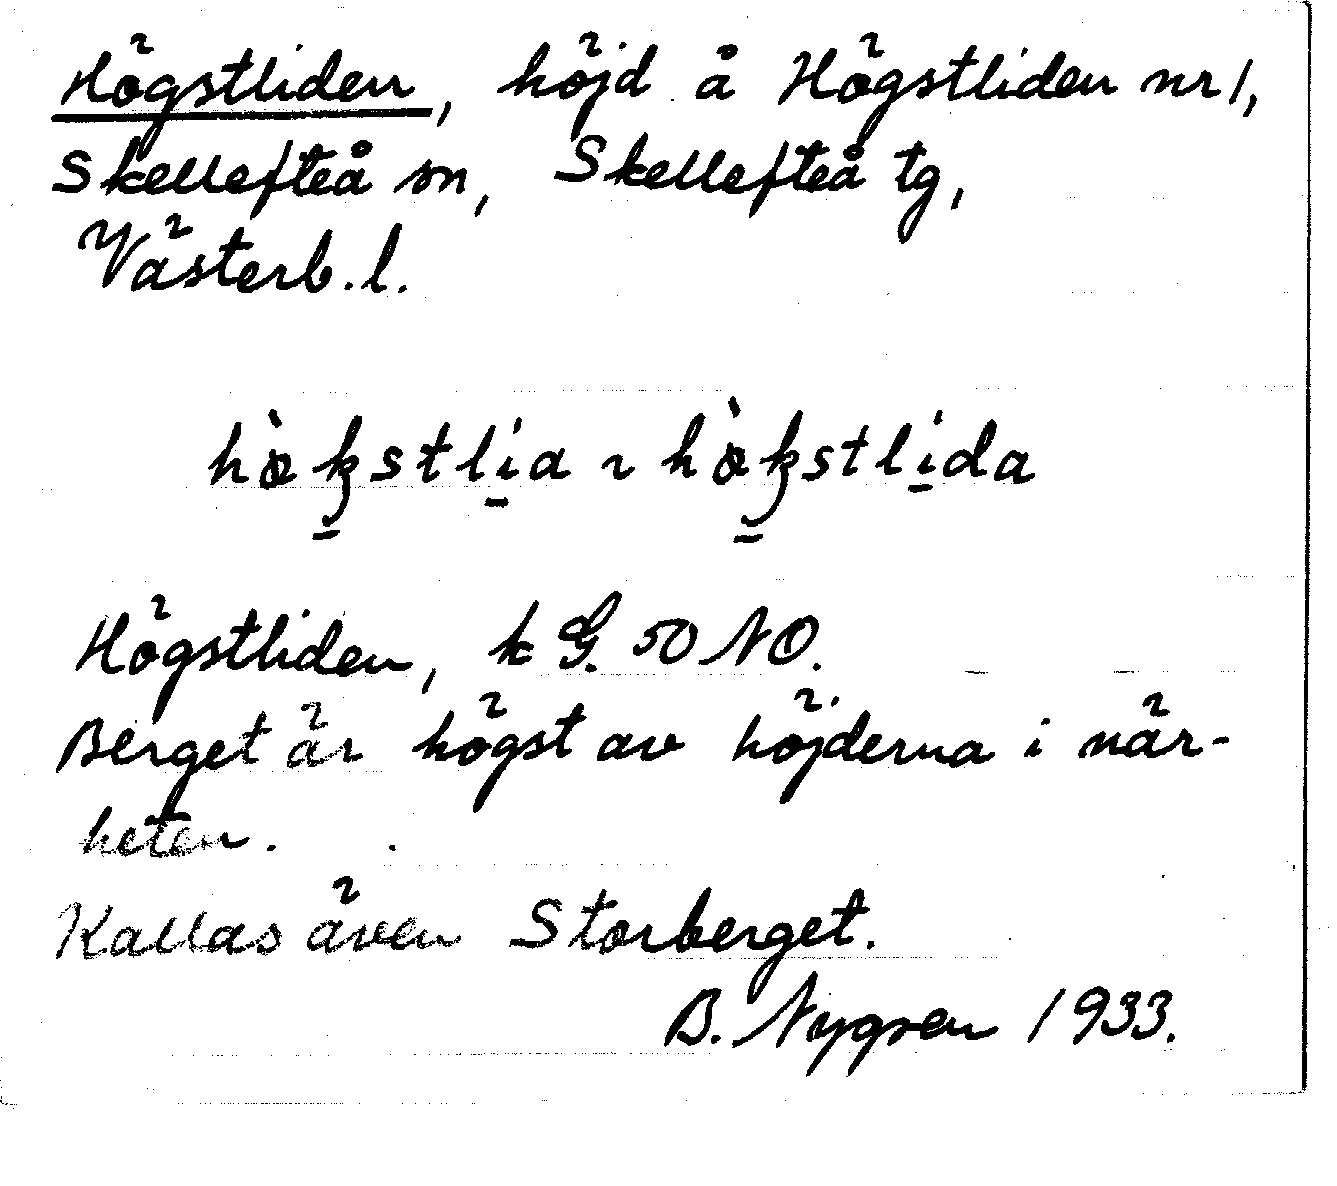 Högstliden, höjd å Högstliden nr 1,
Skellefteå sn, Skellefteå tg,
Västerb.l.
Högstliden, k G. 50 NO.
Berget är högst av höjderna i när-
heten.
Kallas även Storberget.
B. Nygren 1933.